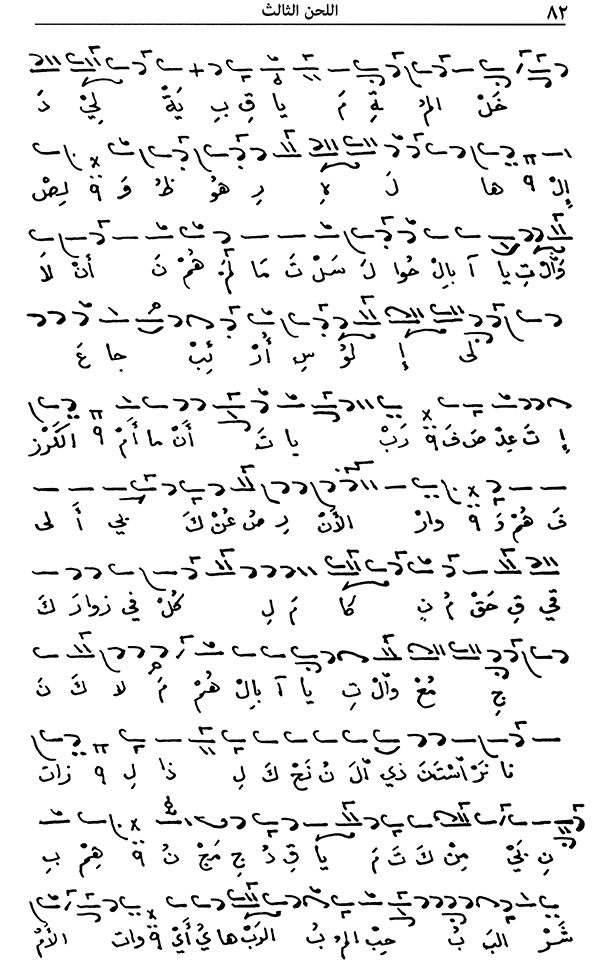 ٨٢ اللحن الثالث
خَلْ المُ ةِ مَ يا قِ بِ يَةْ لِيْ دَ
إِلْ ٩ ها لَ ﻻِ رِ هُو ظُ وَ ٩ لِصْ
وَالْ تِ يا آ بالِ حُوا لَ سَلْ تَ مَا لَمْ هُمْ نَ أَنْ لاَ
لى إِ لُؤْ سِ أُرْ ئِبْ جا عَ
إِ تَ عِدْ صَ فَ ٩ رَبْ يا تَ أَنْ ما أَمْ ٩ الكَرْز
فَ هُمْ وَ ٩ وارْ الأَنْ رِ صُ عُنْ كَ بي أَ لى
قي قِ حَقْ مُ نِ كا مَ لِ كُلْ في زوارَ كَ
جِ مُعْ والْ تِ يا آ بالِ هُمْ مَ لا كَ نَ
نا نَرْ اسْتَنَ ذي الَ نُ نَحْ كَ لِ ذا لِ ٩ زات
نِ بَيْ مِنْ كَ تَ مَ يا قِ دُ جِ مَجْ نُ ٩ هِمْ بِ
شَرْ البَ بُ حِبْ المُ بُ الرَبْ هاي أَيْ ٩ وات الأَمْ